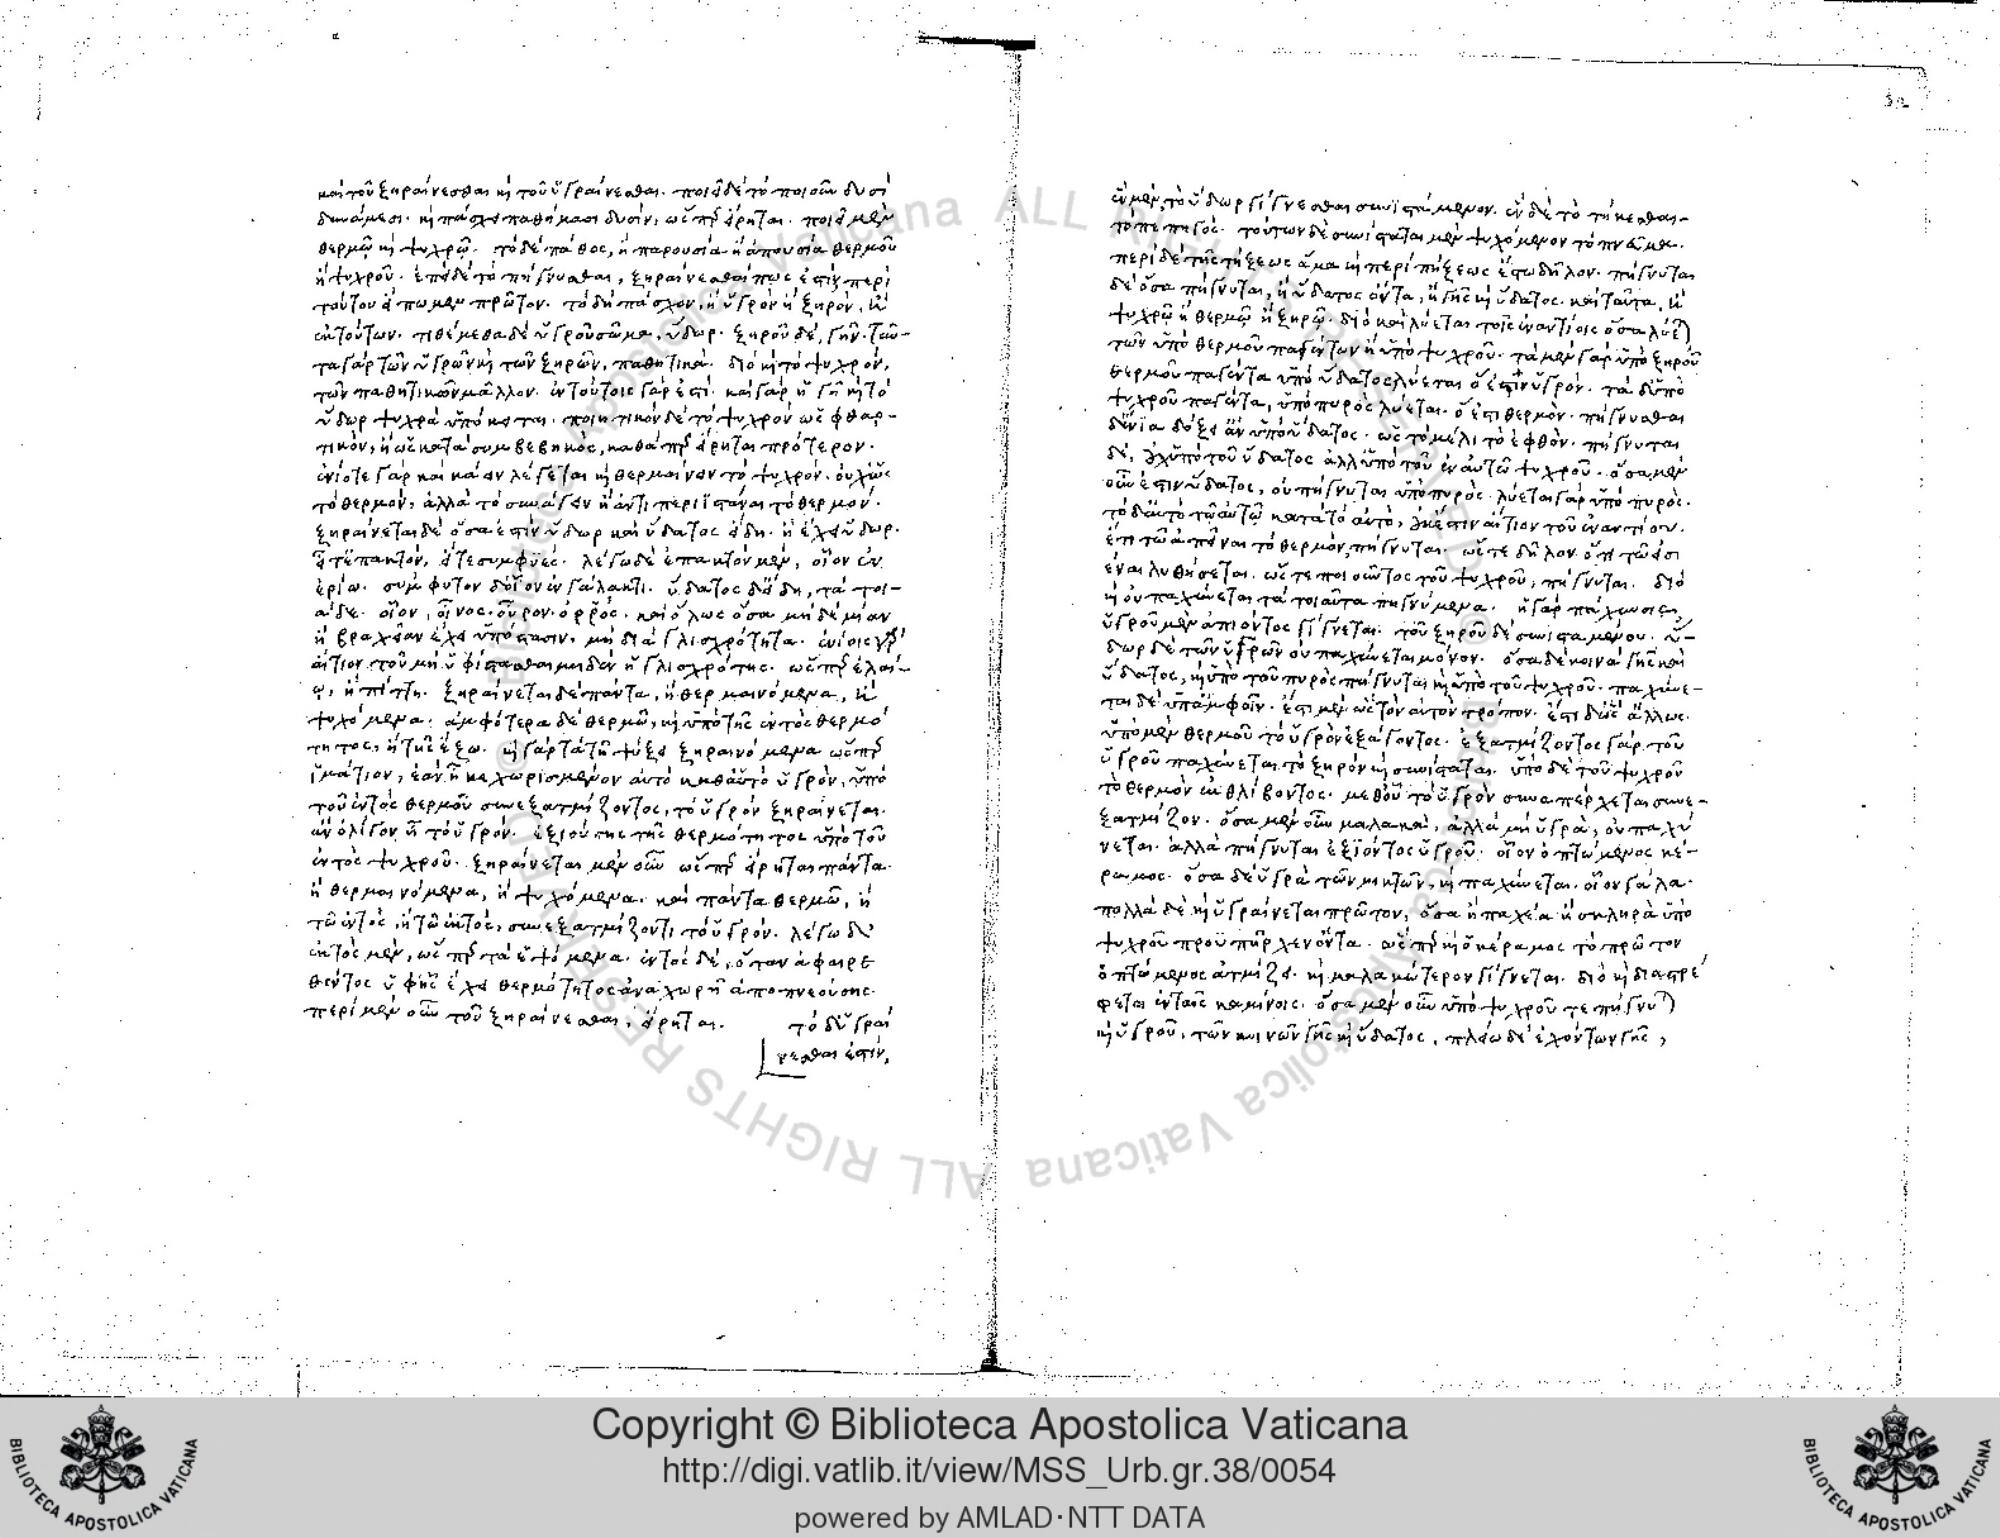 καὶ τοῦ ξηραίνεσθαι κὶ τοῦ ὑγραίνεσθαι. ποιεῖ δὲ τὸ ποιοῦν δυσὶ
δυνάμεσι. κὶ πάσχει παθήμασι δυσίν, ὥσπερ εἴρηται. ποιεῖ μὲν
θερμῶ κὶ ψυχρῶ. τὸ δὲ πάθος, ἢ παρουσία ἢ ἀπουσία θερμοῦ
ἢ ψυχροῦ. ἐπεὶ δὲ τὸ πήγνυσθαι, ξηραίνεσθαί πως ἐστὶ, περὶ
τούτου εἴπωμεν πρῶτον. τὸ δὴ πάσχον, ἢ ὑγρὸν ἢ ξηρὸν, ἢ
ἐκ τούτων. τιθέμεθα δὲ ὑγροῦ σῶμα, ὕδωρ. ξηροῦ δὲ, γῆν. ταῦ-
τα γὰρ τῶν ὑγρῶν κὶ τῶν ξηρῶν, παθητικά. διὸ κὶ τὸ ψυχρὸν,
τῶν παθητικῶν μᾶλλον. ἐν τούτοις γάρ ἐστι. καὶ γὰρ ἡ γῆ κὶ τὸ
ὕδωρ ψυχρὰ ὑπόκειται. ποιητικὸν δὲ τὸ ψυχρὸν ὡς φθαρ-
τικὸν, ἢ ὡς κατὰ συμβεβηκὸς, καθάπερ εἴρηται πρότερον.
ἐνίοτε γὰρ καὶ κάειν λέγεται κὶ θερμαίνειν τὸ ψυχρόν. οὐχ ὡς
τὸ θερμὸν, ἀλλὰ τὸ συνάγειν ἢ ἀντιπεριϊστάναι τὸ θερμόν.
ξηραίνεται δὲ ὅσα ἐστὶν ὕδωρ καὶ ὕδατος εἴδη. ἢ ἔχει ὕδωρ.
εἴτ' ἐπακτὸν, εἴτε συμφυές. λέγω δὲ ἐπακτὸν μὲν, οἷον ἐν
ἐρίω. σύμφυτον δ' οἷον ἐν γάλακτι. ὕδατος δ' εἴδη, τὰ τοι-
άδε. οἷον, οἶνος. οὖρον. ὀρρός. καὶ ὅλως ὅσα μηδεμίαν
ἢ βραχεῖαν ἔχει ὑπόστασιν, μὴ διὰ γλισχρότητα. ἐνίοις γὰρ
αἴτιον τοῦ μὴ ὑφίστασθαι μηδὲν ἡ γλισχρότης. ὥσπερ ἐλαί-
ω, ἢ πίττη. ξηραίνεται δὲ πάντα, ἢ θερμαινόμενα, ἢ
ψυχόμενα. ἀμφότερα δὲ θερμῶ, κὶ ὑπὸ τῆς ἐντὸς θερμό
τητος, ἢ τῆς ἔξω. κὶ γὰρ τὰ τῆ ψύξει ξηραινόμενα ὥσπερ
ἱμάτιον, ἐὰν ἦ κεχωρισμένον αὐτὸ καθ' αὑτὸ ὑγρὸν, ὑπὸ
τοῦ ἐντὸς θερμοῦ συνεξατμίζοντος, τὸ ὑγρὸν ξηραίνεται.
ἂν ὀλίγον ἦ τὸ ὑγρόν. ἐξιούσης τῆς θερμότητος ὑπὸ τοῦ
ἐντὸς ψυχροῦ. ξηραίνεται μὲν οὖν ὥσπερ εἴρηται πάντα.
ἢ θερμαινόμενα, ἢ ψυχόμενα. καὶ πάντα θερμῶ, ἢ
τῶ ἐντὸς, ἢ τῶ ἐκτὸς, συνεξατμίζοντι τὸ ὑγρόν. λέγω δὲ
ἐκτὸς μὲν, ὥσπερ τὰ ἑψόμενα. ἐντὸς δὲ, ὅταν ἀφαιρε
θέντος ὑφ' ἧς ἔχει θερμότητος ἀναχωρῆ ἀποπνεούσης.
περὶ μὲν οὖν τοῦ ξηραίνεσθαι, εἴρηται. τὸ δ' ὑγραί
νεσθαι ἐστὶν,
ἓν μὲν, τὸ ὕδωρ γίγνεσθαι συνϊστάμενον. ἓν δὲ τὸ τήκεσθαι
τὸ πεπηγός. τούτων δὲ συνίσταται μὲν ψυχόμενον τὸ πνεῦμα.
περὶ δὲ τῆς τήξεως ἅμα κὶ περὶ πήξεως ἔσται δῆλον. πήγνυται
δὲ ὅσα πήγνυται, ἢ ὕδατος ὄντα, ἢ γῆς κὶ ὕδατος. καὶ ταῦτα, ἢ
ψυχρῶ ἢ θερμῶ ἢ ξηρῶ. διὸ καὶ λύεται τοῖς ἐναντίοις ὅσα λύεται
τῶν ὑπὸ θερμοῦ παγέντων ἢ ὑπὸ ψυχροῦ. τὰ μὲν γὰρ ὑπὸ ξηροῦ
θερμοῦ παγέντα ὑπὸ ὕδατος λύεται ὅ ἐστιν ὑγρόν. τὰ δ' ὑπὸ
ψυχροῦ παγέντα, ὑπὸ πυρὸς λύεται. ὅ ἐστι θερμόν. πήγνυσθαι
δ' ἔνια δόξει ἂν ὑπὸ ὕδατος. ὡς τὸ μέλι τὸ ἑφθὸν. πήγνυται
δὲ, οὐχ ὑπὸ τοῦ ὕδατος ἀλλ' ὑπὸ τοῦ ἐν αὐτῶ ψυχροῦ. ὅσα μὲν
οὖν ἐστιν ὕδατος, οὐ πήγνυται ὑπὸ πυρὸς. λύεται γὰρ ὑπὸ πυρὸς.
τὸ δ' αὐτὸ τῶ αὐτῶ κατὰ τὸ αὐτὸ, οὐκ ἔστιν αἴτιον τοῦ ἐναντίου.
ἔτι τῶ ἀπιέναι τὸ θερμὸν, πήγνυται. ὥστε δῆλον ὅτι τῶ εἰσι
έναι λυθήσεται. ὥστε ποιοῦντος τοῦ ψυχροῦ, πήγνυται. διὸ
κὶ οὐ παχύνεται τὰ τοιαῦτα πηγνύμενα. ἡ γὰρ πάχυνσις,
ὑγροῦ μὲν ἀπιόντος γίγνεται. τοῦ ξηροῦ δὲ συνισταμένου. ὕ-
δωρ δὲ τῶν ὑγρῶν οὐ παχύνεται μόνον. ὅσα δὲ κοινὰ γῆς καὶ
ὕδατος, κὶ ὑπὸ τοῦ πυρὸς πήγνυται κὶ ὑπὸ τοῦ ψυχροῦ. παχύνε-
ται δὲ ὑπ' ἀμφοῖν. ἔστι μὲν ὡς τὸν αὐτὸν τρόπον. ἔστι δ' ὡς ἄλλως.
ὑπὸ μὲν θερμοῦ τὸ ὑγρὸν ἐξάγοντος. ἐξατμίζοντος γὰρ τοῦ
ὑγροῦ παχύνεται τὸ ξηρὸν κὶ συνίσταται. ὑπὸ δὲ τοῦ ψυχροῦ
τὸ θερμὸν ἐκθλίβοντος. μεθ' οὗ τὸ ὑγρὸν συναπέρχεται συνε-
ξατμίζον. ὅσα μὲν οὖν μαλακὰ, ἀλλὰ μὴ ὑγρὰ, οὐ παχύ
νεται. ἀλλὰ πήγνυται ἐξϊόντος ὑγροῦ. οἷον ὁ ὀπτώμενος κέ-
ραμος. ὅσα δὲ ὑγρὰ τῶν μικτῶν, κὶ παχύνεται. οἷον γάλα.
πολλὰ δὲ κὶ ὑγραίνεται πρῶτον, ὅσα ἢ παχέα ἢ σκληρὰ ὑπὸ
ψυχροῦ προϋπῆρχεν ὄντα. ὥσπερ κὶ ὁ κέραμος τὸ πρῶτον
ὀπτώμενος ἀτμίζει. κὶ μαλακώτερον γίγνεται. διὸ κὶ διαστρέ
φεται ἐνταῖς καμίνοις. ὅσα μὲν οὖν ὑπὸ ψυχροῦ τε πήγνυται
κὶ ὑγροῦ, τῶν κοινῶν γῆς κὶ ὕδατος, πλείω δὲ ἐχόντων γῆς,
Copyright © Biblioteca Apostolica Vaticana
http://digi.vatlib.it/view/MSS_Urb.gr.38/0054
powered by AMLAD·NTT DATA